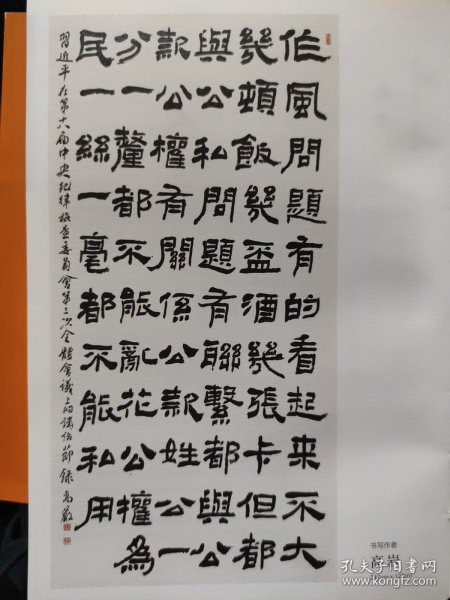 作風問題有的看起来不大
幾頓飯幾盃酒幾張卡但都
與公私問題有聯繫都與公
款公權有關係公款姓公一
分一釐都不能亂花公權為
民一絲一毫都不能私用
習近平在第十八屆中央紀律檢查委員會第三次全體會議上的講話節録高巖
书写作者
高岩
孔夫子旧书网
www.kongfz.com